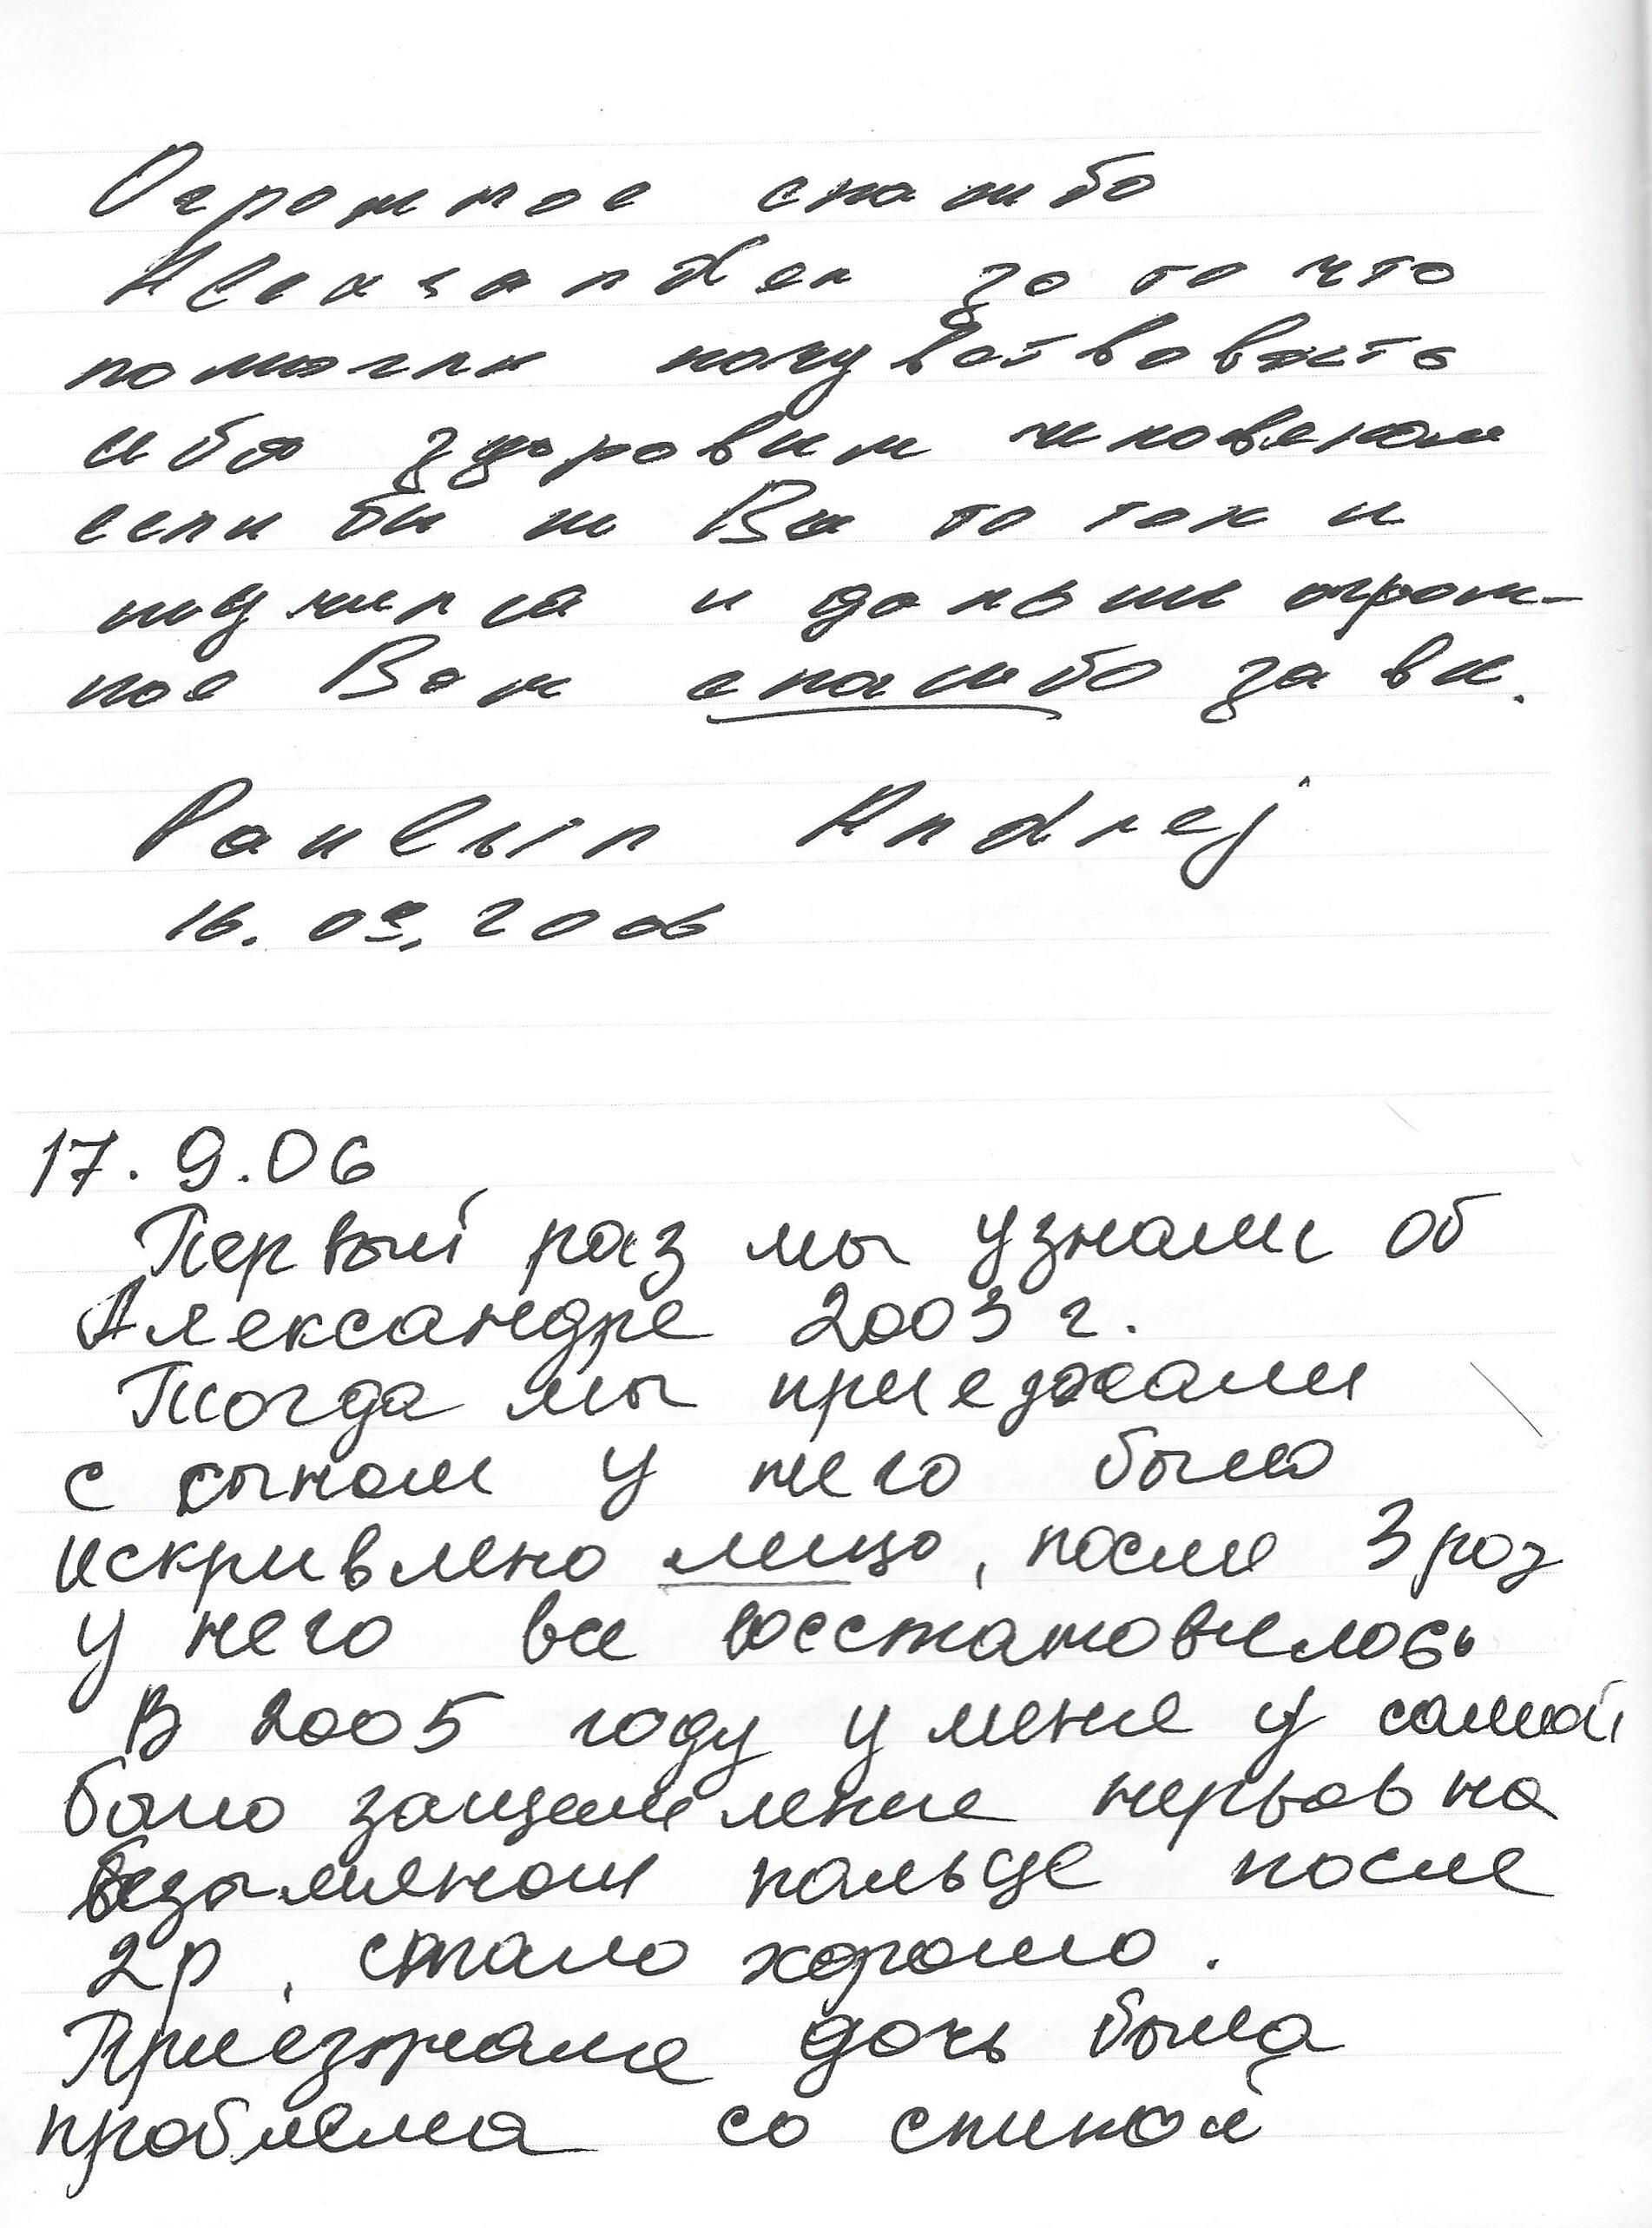 Огромное спасибо
Alexander за то что
помогли почувствовать
себя здоровым человеком
если бы не Вы то так и
мучился и дальше огром-
ное Вам спасибо за вс.
Paulsin Andrej
16.09.2006
17.9.06
Первый раз мы узнали об
Александре 2003 г.
Тогда мы приезжали
с сыном у него было
искривлено лицо, после 3 раз
у него все восстановилось
В 2005 году у мене у самой
было защемление нервов на
безымяном пальце после
2 р, стало хорошо.
Приезжали дочь была
проблема со спиной